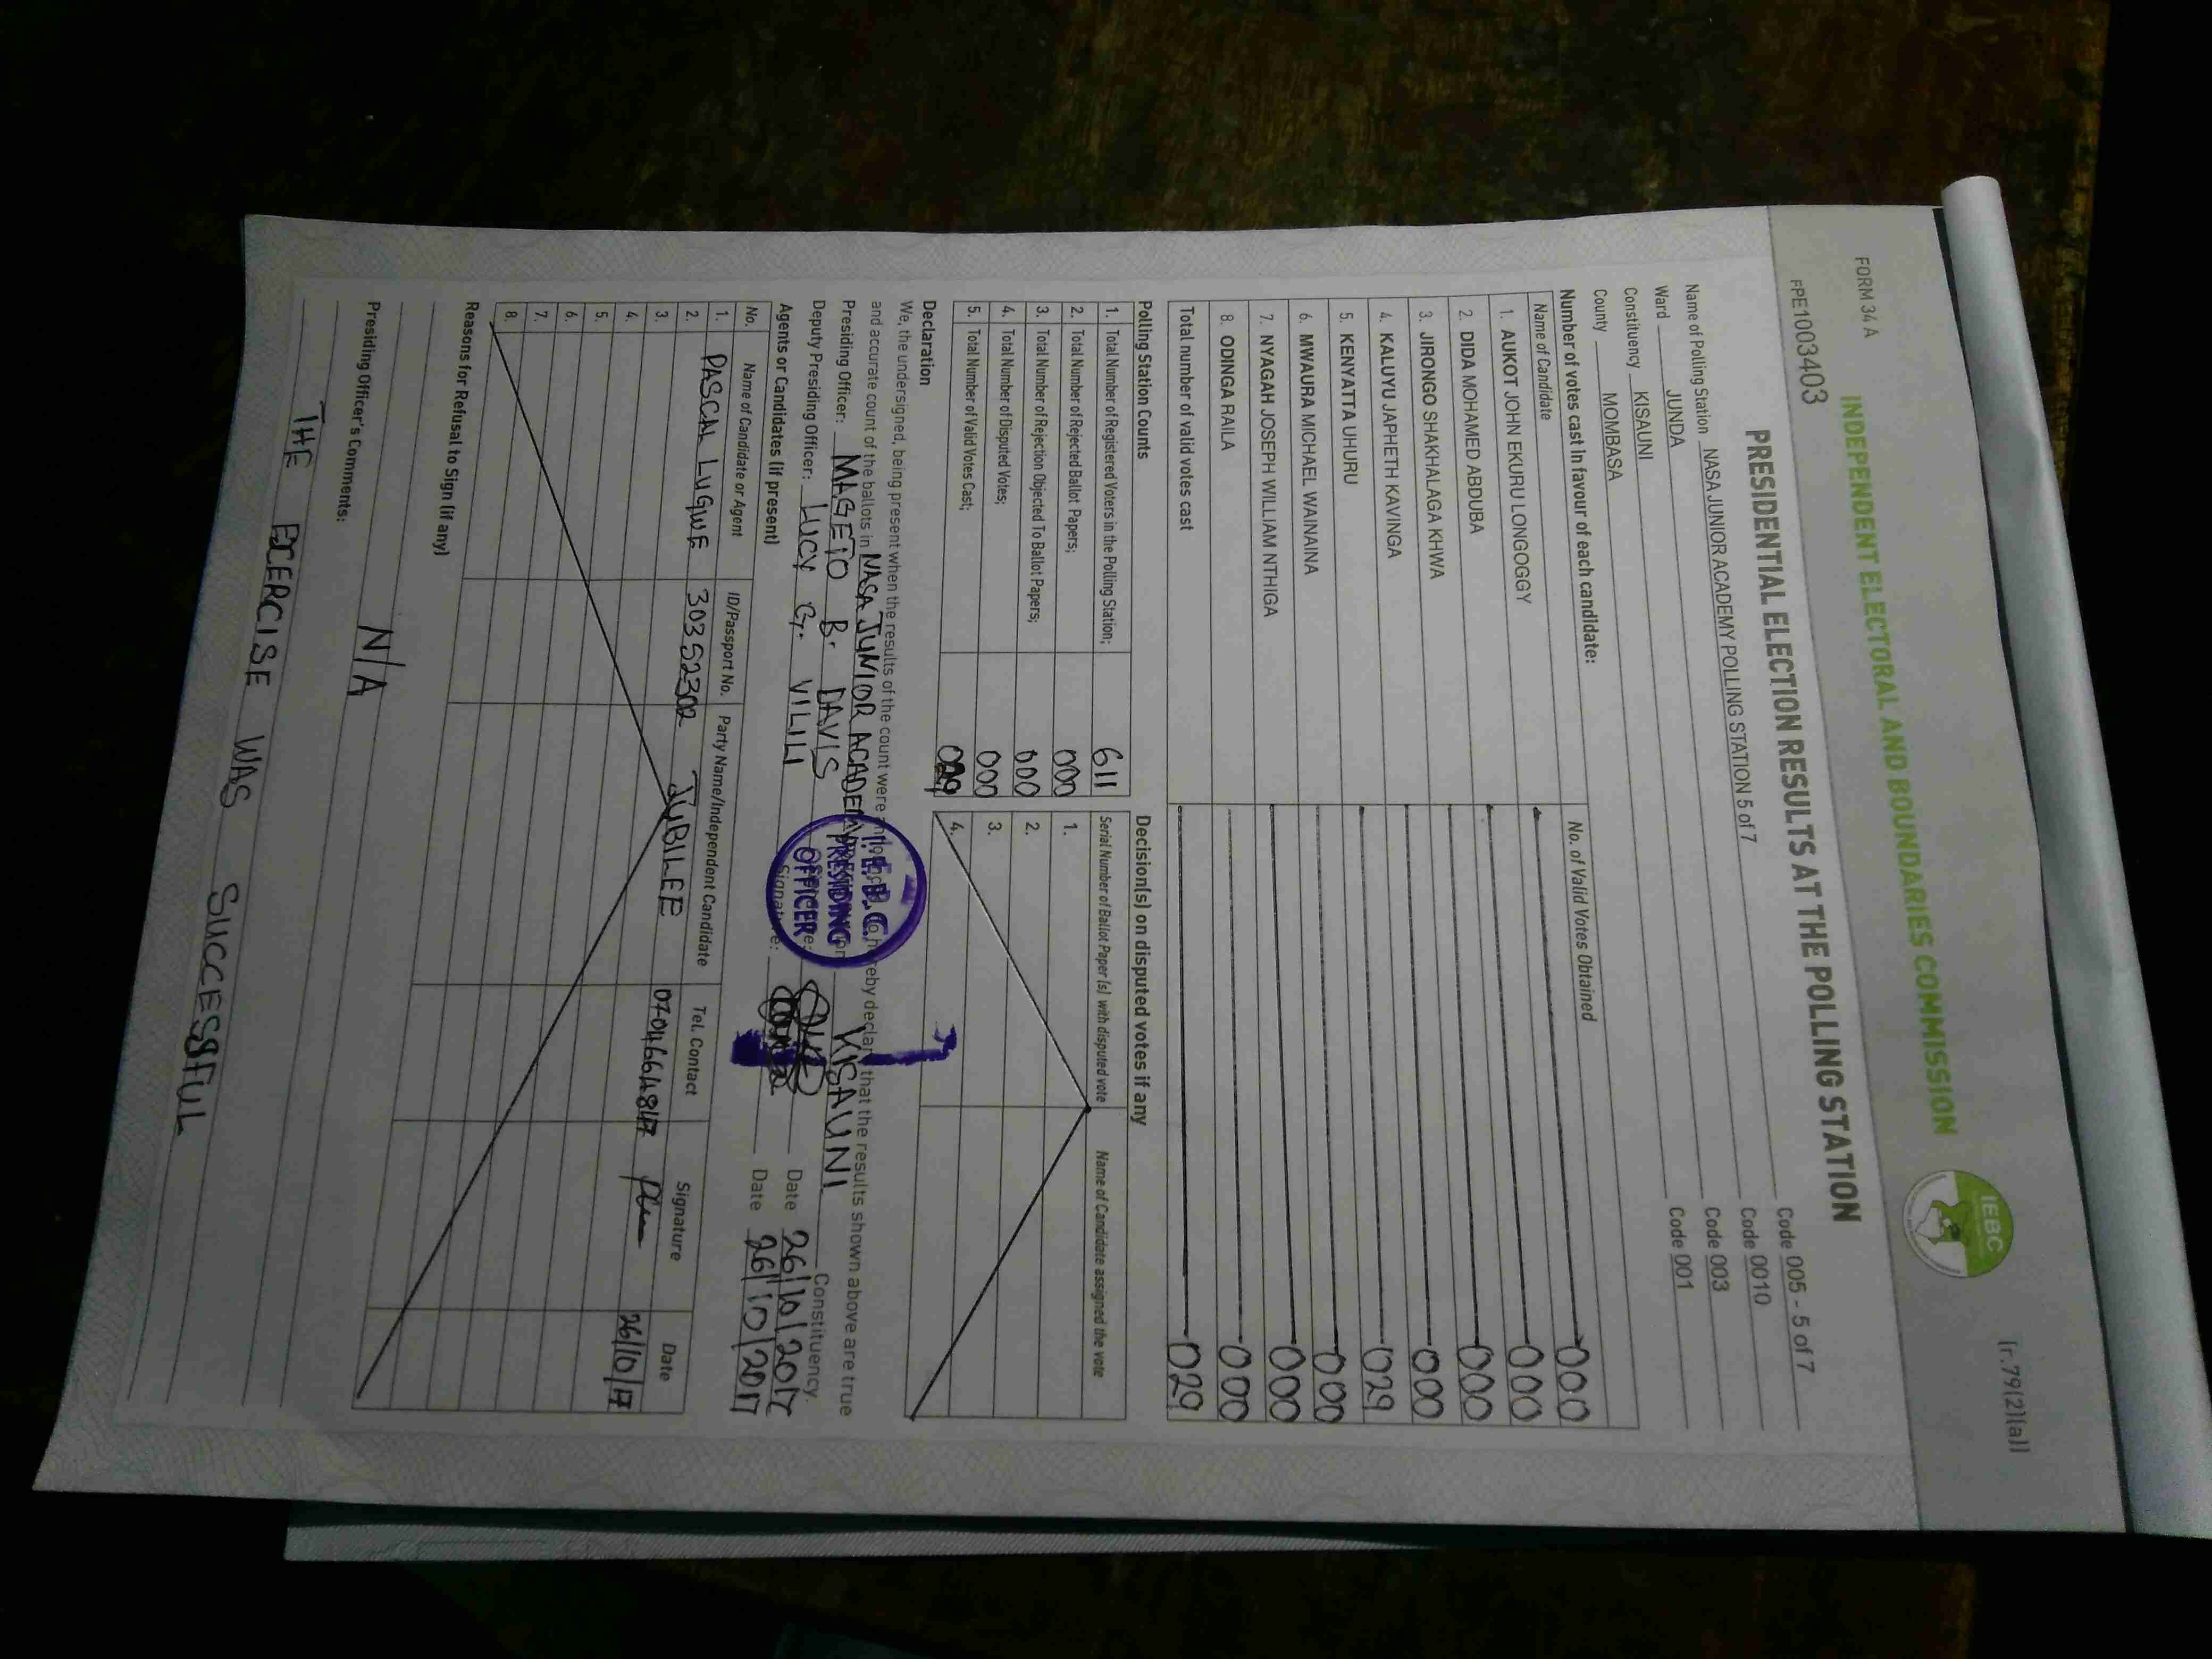 FORM 34 A
[r.79(2)(a)]
INDEPENDENT ELECTORAL AND BOUNDARIES COMMISSION
IEBC
FPE1003403
PRESIDENTIAL ELECTION RESULTS AT THE POLLING STATION
Name of Polling Station NASA JUNIOR ACADEMY POLLING STATION 5 of 7 Code 005 - 5 of 7
Ward JUNDA Code 0010
Constituency KISAUNI Code 003
County MOMBASA Code 001
Number of votes cast in favour of each candidate:
Name of Candidate No. of Valid Votes Obtained
1. AUKOT JOHN EKURU LONGOGGY 000
2. DIDA MOHAMED ABDUBA 000
3. JIRONGO SHAKHALAGA KHWA 000
4. KALUYU JAPHETH KAVINGA 000
5. KENYATTA UHURU 029
6. MWAURA MICHAEL WAINAINA 000
7. NYAGAH JOSEPH WILLIAM NTHIGA 000
8. ODINGA RAILA 000
Total number of valid votes cast 029
Polling Station Counts
1. Total Number of Registered Voters in the Polling Station; 611
2. Total Number of Rejected Ballot Papers; 000
3. Total Number of Rejection Objected To Ballot Papers; 000
4. Total Number of Disputed Votes; 000
5. Total Number of Valid Votes Cast; 029
Decision(s) on disputed votes if any
Serial Number of Ballot Paper (s) with disputed vote Name of Candidate assigned the vote
1.
2.
3.
4.
Declaration
We, the undersigned, being present when the results of the count were declare that the results shown above are true
and accurate count of the ballots in NASA JUNIOR ACADEMY KISAUNI Constituency.
Presiding Officer: MAGETO B. DAVIS Date 26/10/2017
Deputy Presiding Officer: LUCY G. VILILI Signature: Date 26/10/2017
I.E.B.C.
PRESIDING
OFFICER
Agents or Candidates (if present)
No. Name of Candidate or Agent ID/Passport No. Party Name/Independent Candidate Tel. Contact Signature Date
1. PASCAL LUGWE 30352302 JUBILEE 0704664847 26/10/17
2.
3.
4.
5.
6.
7.
8.
Reasons for Refusal to Sign (if any)
N/A
Presiding Officer's Comments:
THE EXERCISE WAS SUCCESSFUL